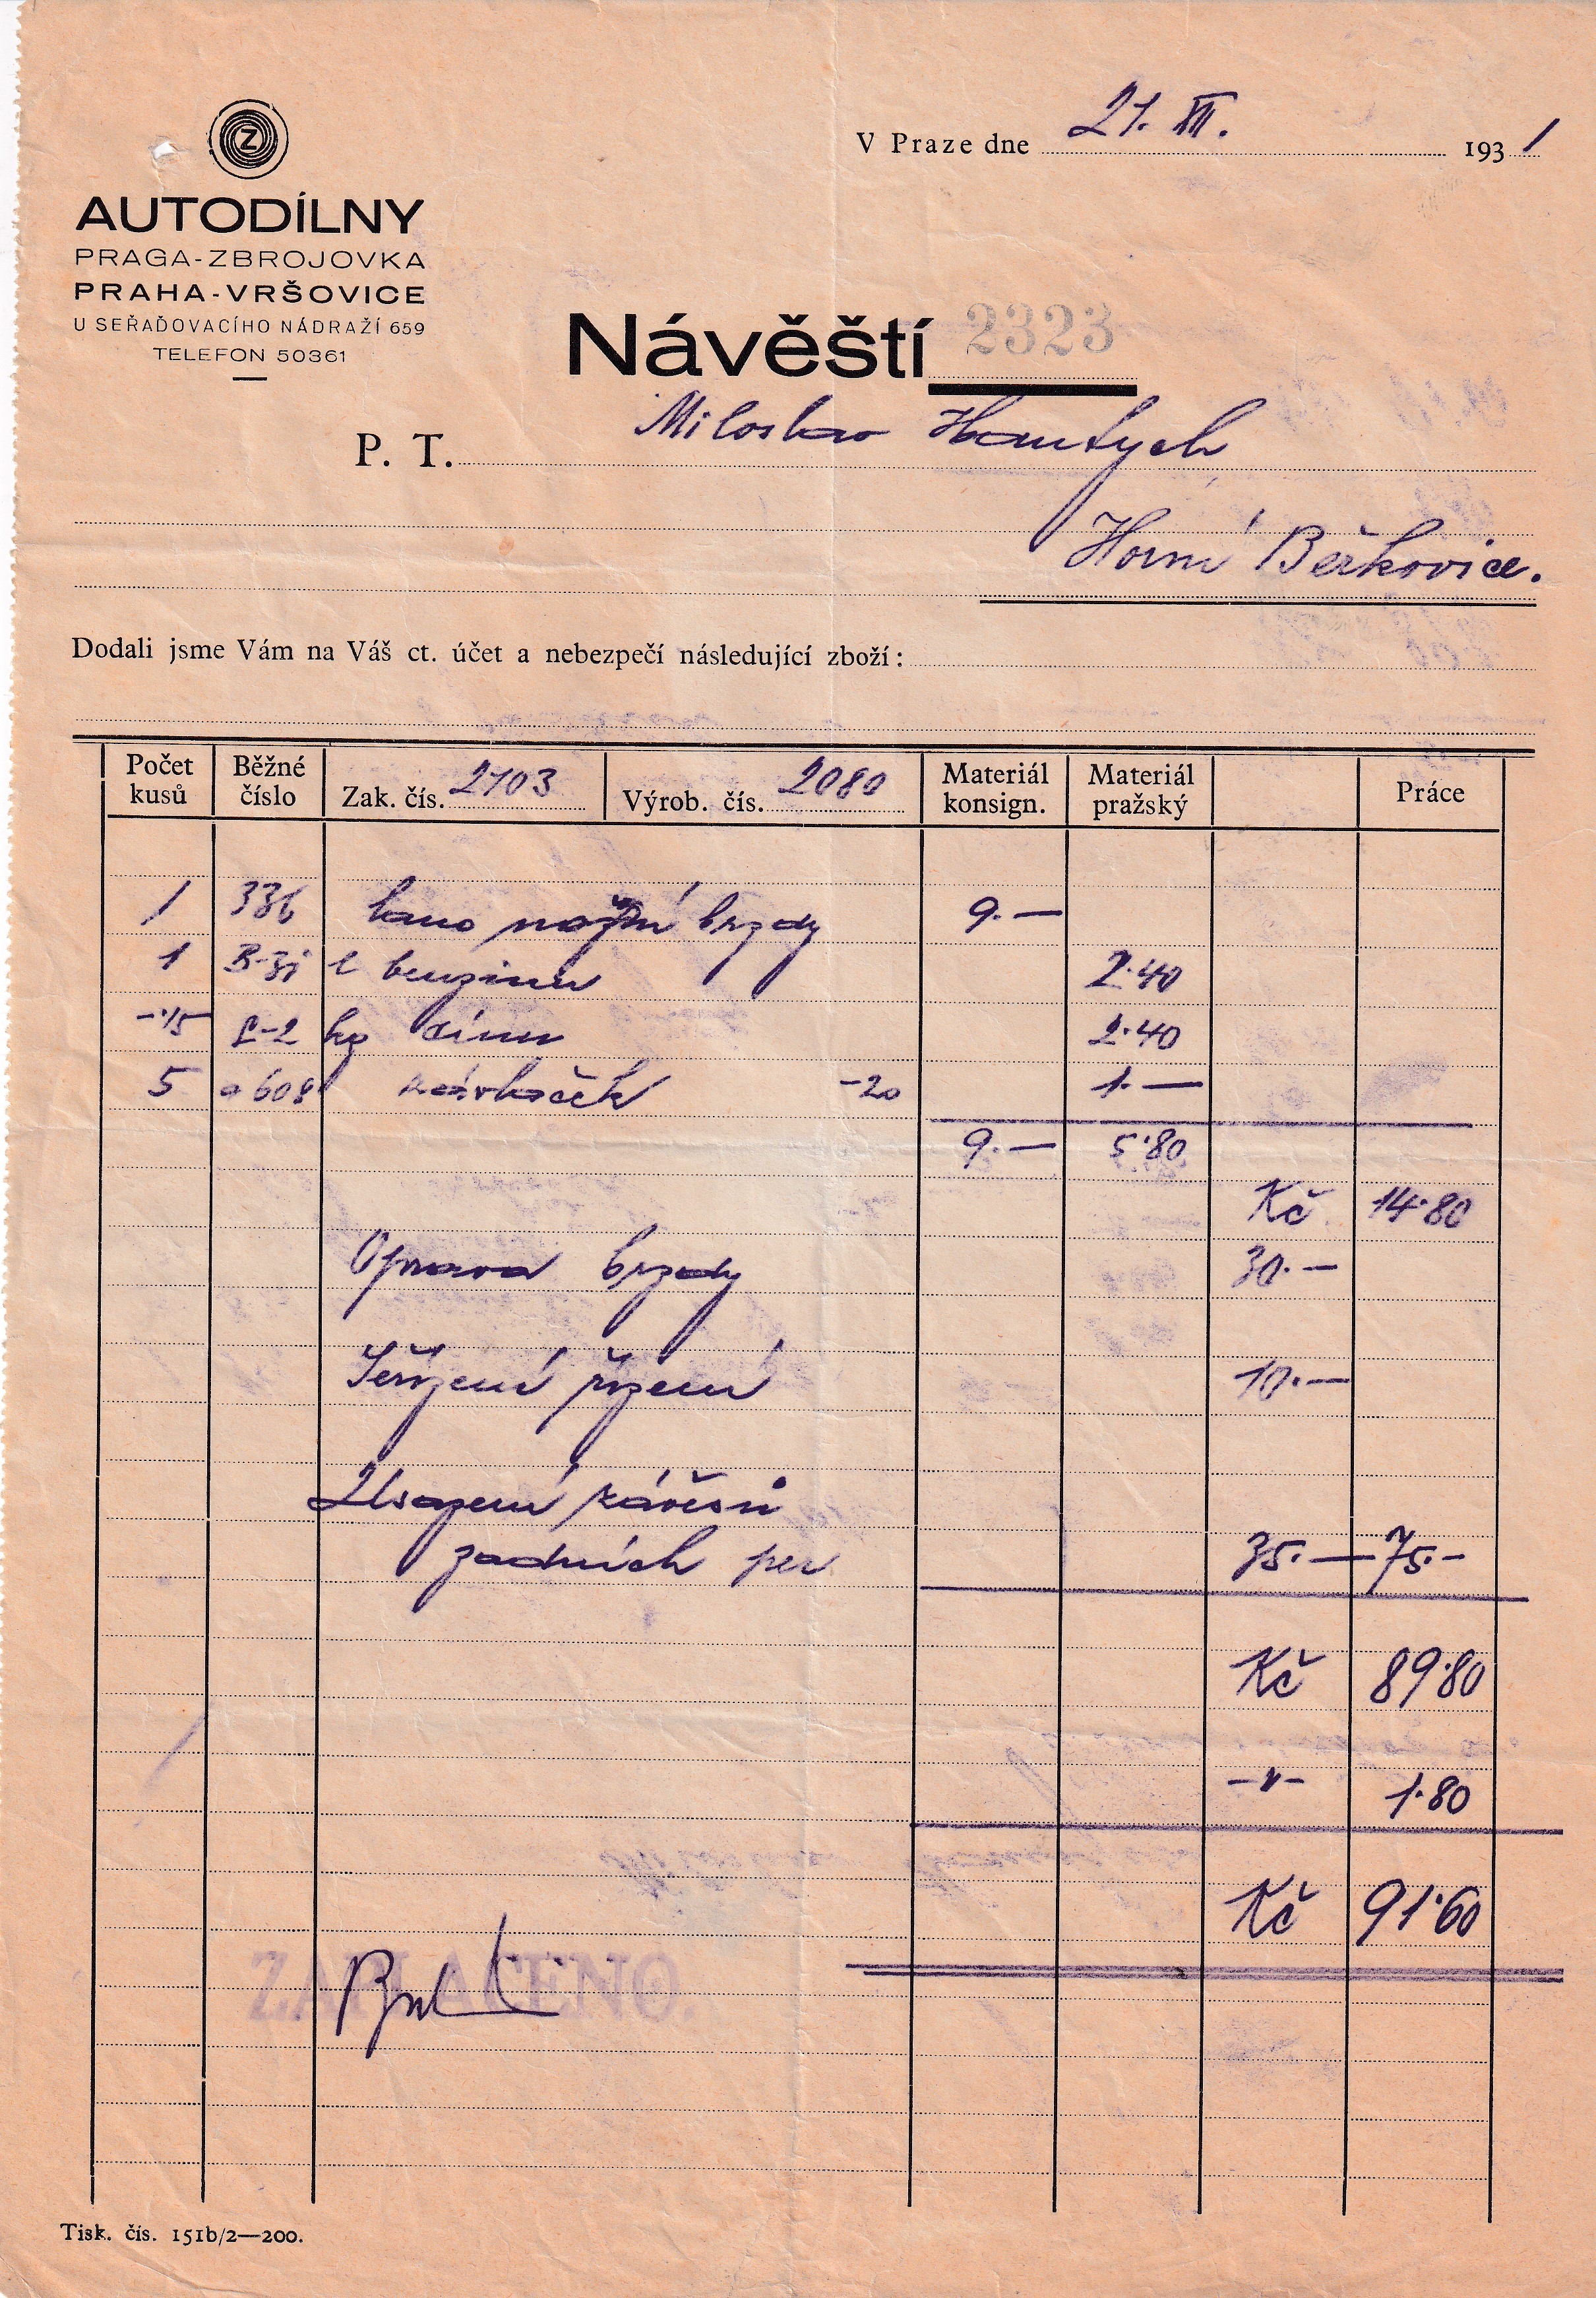 Z
V Praze dne 21. XII. 1931
AUTODÍLNY
PRAGA-ZBROJOVKA
PRAHA-VRŠOVICE
U SEŘAĎOVACÍHO NÁDRAŽÍ 659
TELEFON 50361
Návěští 2323
P. T. Miloslav
Horní Beřkovice.
Dodali jsme Vám na Váš ct. účet a nebezpečí následující zboží:
Počet kusů Běžné číslo Zak. čís. 2103 Výrob. čís. 2080 Materiál konsign. Materiál pražský Práce
1 336 lano nožní brzdy 9.—
1 l benzinu 2·40
kg cínu 2·40
5 a 608 závlaček -20 1.—
9.— 5·80
Kč 14·80
Oprava brzdy 30.—
Seřízení řízení 10.—
Usazení závěsů
zadních per 35.— 75.–
Kč 89·80
1·80
Kč 91·60
ZAPLACENO.
Tisk. čís. 151b/2—200.